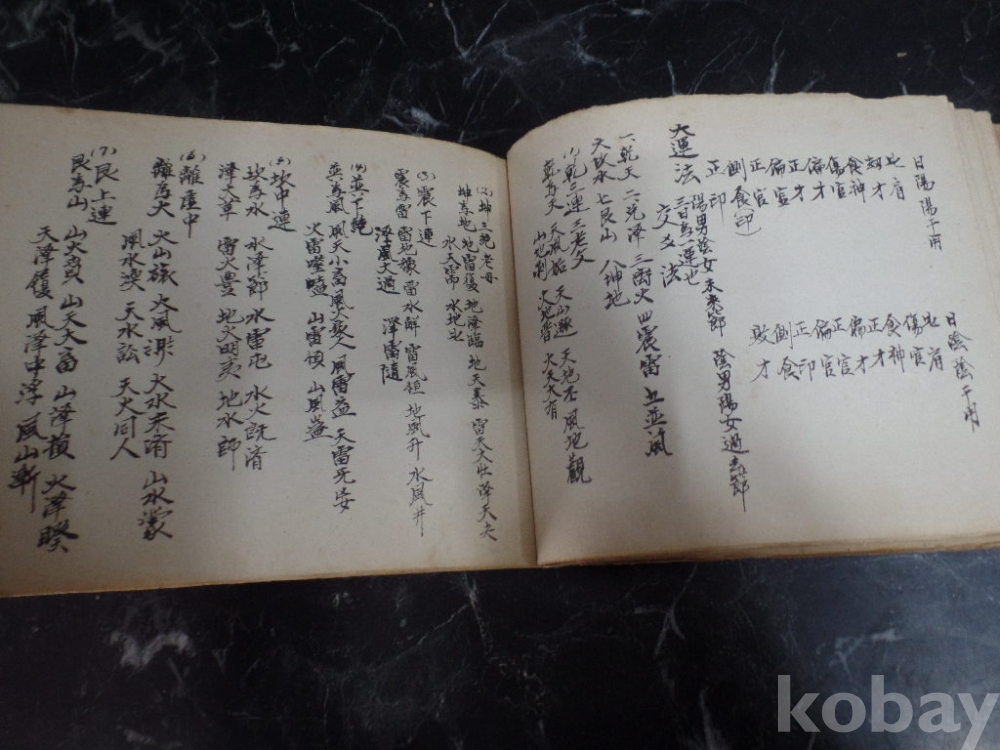 日陽陽干用
日陰陰干用
比肩
劫才
食神
傷官
偏才
正才
偏官
正官
倒食印)
正印
比肩
傷官
食神
正才
偏才
正官
偏官
正印
倒食
敗才
大運法
陽男陰女 未来節 陰男陽女 過去節
三日為一運也
交爻法
一乾天 二兌泽 三离火 四震雷 五巽風
六坎水 七艮山 八坤地
(1)乾三連 三老父
乾為天 天風姤 天山遯 天地否 風地觀
山地剝 火地晋 火天大有
(2)坤三絶老母
坤為地 地雷復 地澤臨 地天泰 雷天大壮 澤天夬
水天需 水地比
(3)震下連
震為雷 雷地豫 雷水解 雷風恒 地風升 水風井
澤風大過 澤雷隨
(4)巽下絶
巽為風 風天小畜 風火家人 風雷益 天雷无妄
火雷噬嗑 山雷頤 山風蠱
(5)坎中連
坎為水 水泽節 水雷屯 水火既濟
澤火革 雷火豊 地火明夷 地水師
(6)離虚中
離為火 火山旅 火風鼎 火水未濟 山水蒙
風水渙 天水訟 天火同人
(7)艮上連
艮為山 山火賁 山天大畜 山泽損 火澤睽
天澤履 風澤中孚 風山漸
kobay